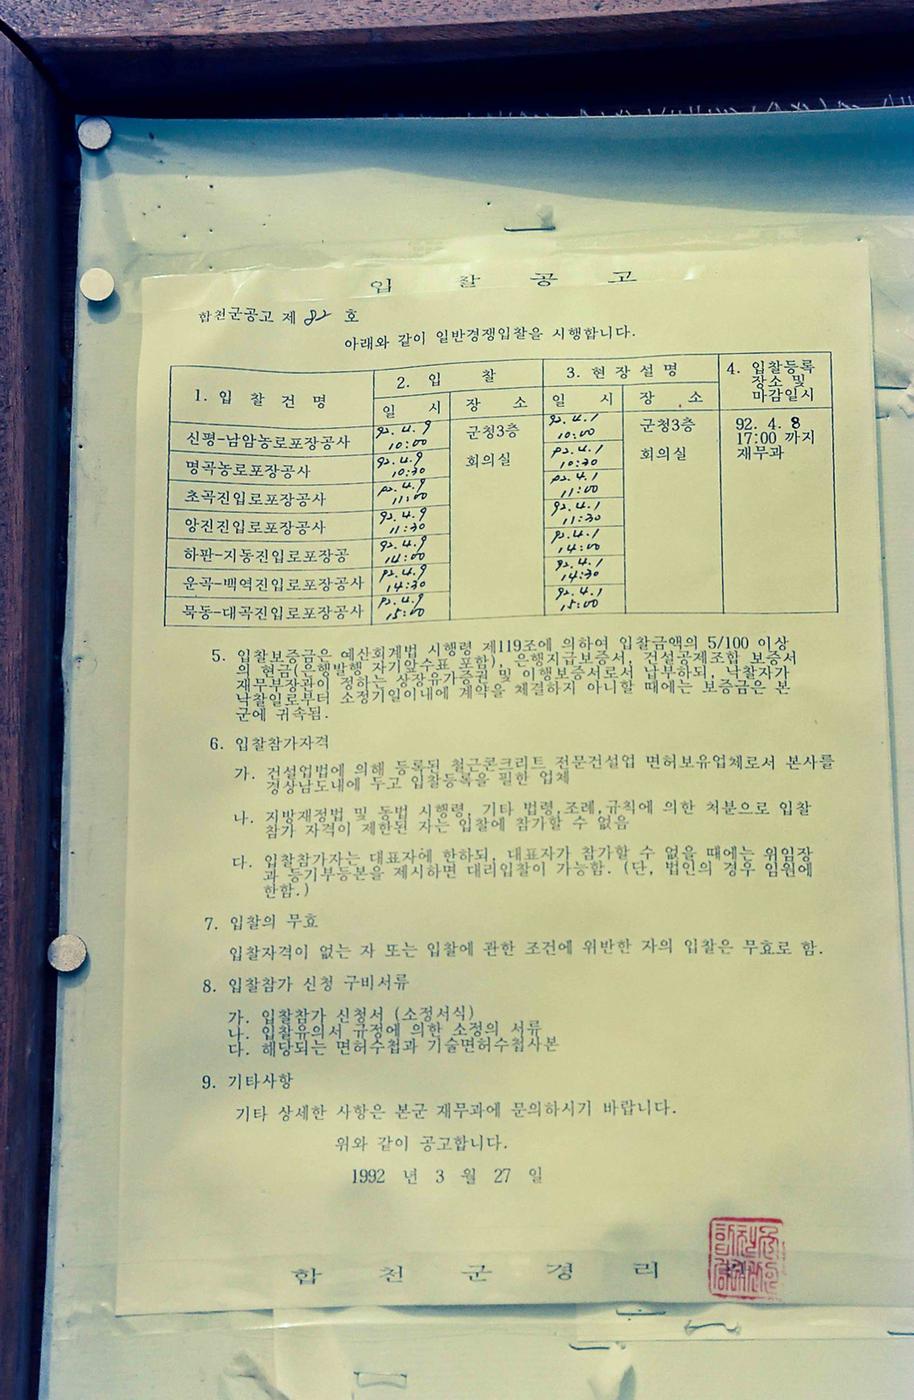 입 찰 공 고
합천군공고 제 82 호
아래와 같이 일반경쟁입찰을 시행합니다.
1. 입 찰 건 명
2. 입 찰
3. 현 장 설 명
4. 입찰등록
장소 및
마감일시
일 시
장 소
일 시
장 소
신평-남암농로포장공사 92.4.9 10:00 군청3층 92.4.1 10:00 군청3층 92. 4. 8
17:00 까지
명곡농로포장공사 92.4.9 10:30 회의실 92.4.1 10:30 회의실 재무과
초곡진입로포장공사 92.4.9 11:00 92.4.1 11:00
앙진진입로포장공사 92.4.9 11:30 92.4.1 11:30
하판-지동진입로포장공 92.4.9 14:00 92.4.1 14:00
운곡-백역진입로포장공사 92.4.9 14:30 92.4.1 14:30
묵동-대곡진입로포장공사 92.4.9 15:00 92.4.1 15:00
5. 입찰보증금은 예산회계법 시행령 제119조에 의하여 입찰금액의 5/100 이상
의 현금(은행발행 자기앞수표 포함), 은행지급보증서, 건설공제조합 보증서
재무부장관이 정하는 상장유가증권 및 이행보증서로서 납부하되, 낙찰자가
낙찰일로부터 소정기일이내에 계약을 체결하지 아니할 때에는 보증금은 본
군에 귀속됨.
6. 입찰참가자격
가. 건설업법에 의해 등록된 철근콘크리트 전문건설업 면허보유업체로서 본사를
경상남도내에 두고 입찰등록을 필한 업체
나. 지방재정법 및 동법 시행령, 기타 법령,조례,규칙에 의한 처분으로 입찰
참가 자격이 제한된 자는 입찰에 참가할 수 없음
다. 입찰참가자는 대표자에 한하되, 대표자가 참가할 수 없을 때에는 위임장
과 등기부등본을 제시하면 대리입찰이 가능함. (단, 법인의 경우 임원에
한함.)
7. 입찰의 무효
입찰자격이 없는 자 또는 입찰에 관한 조건에 위반한 자의 입찰은 무효로 함.
8. 입찰참가 신청 구비서류
가. 입찰참가 신청서 (소정서식)
나. 입찰유의서 규정에 의한 소정의 서류
다. 해당되는 면허수첩과 기술면허수첩사본
9. 기타사항
기타 상세한 사항은 본군 재무과에 문의하시기 바랍니다.
위와 같이 공고합니다.
1992 년 3 월 27 일
합 천 군 경 리